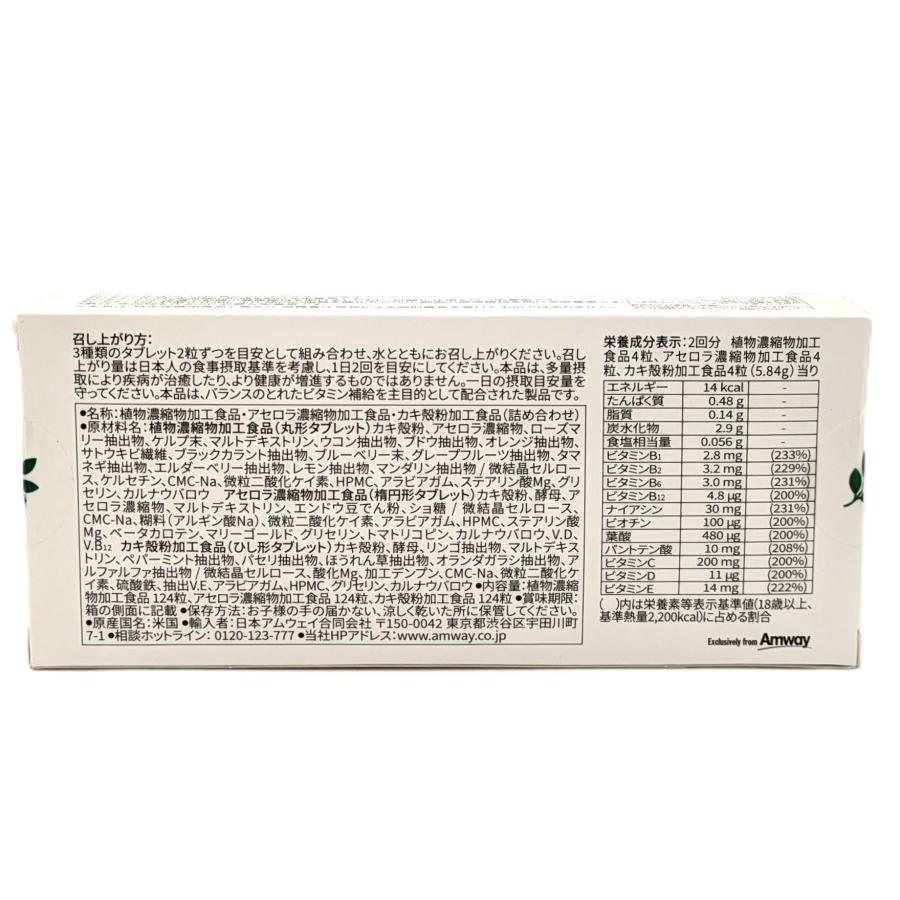 召し上がり方:
3種類のタブレット2粒ずつを目安として組み合わせ、水とともにお召し上がりください。召し
上がり量は日本人の食事摂取基準を考慮し、1日2回を目安にしてください。本品は、多量摂
取により疾病が治癒したり、より健康が増進するものではありません。一日の摂取目安量を
守ってください。本品は、バランスのとれたビタミン補給を主目的として配合された製品です。
●名称:植物濃縮物加工食品・アセロラ濃縮物加工食品・カキ殻粉加工食品(詰め合わせ)
●原材料名:植物濃縮物加工食品(丸形タブレット)カキ殻粉、アセロラ濃縮物、ローズマ
リー抽出物、ケルプ末、マルトデキストリン、ウコン抽出物、ブドウ抽出物、オレンジ抽出物、
サトウキビ繊維、ブラックカラント抽出物、ブルーベリー末、グレープフルーツ抽出物、タマ
ネギ抽出物、エルダーベリー抽出物、レモン抽出物、マンダリン抽出物/微結晶セルロー
ス、ケルセチン、CMC-Na、微粒二酸化ケイ素、HPMC、アラビアガム、ステアリン酸Mg、グリ
セリン、カルナウバロウ アセロラ濃縮物加工食品(楕円形タブレット)カキ殻粉、酵母、ア
セロラ濃縮物、マルトデキストリン、エンドウ豆でん粉、ショ糖/微結晶セルロース、
CMC-Na、糊料(アルギン酸Na)、微粒二酸化ケイ素、アラビアガム、HPMC、ステアリン酸
Mg、ベータカロテン、マリーゴールド、グリセリン、トマトリコピン、カルナウバロウ、V.D、
V.B12 カキ殻粉加工食品(ひし形タブレット)カキ殻粉、酵母、リンゴ抽出物、マルトデキス
トリン、ペパーミント抽出物、パセリ抽出物、ほうれん草抽出物、オランダガラシ抽出物、ア
ルファルファ抽出物/微結晶セルロース、酸化Mg、加工デンプン、CMC-Na、微粒二酸化ケ
イ素、硫酸鉄、抽出V.E、アラビアガム、HPMC、グリセリン、カルナウバロウ ●内容量:植物濃縮
物加工食品 124粒、アセロラ濃縮物加工食品 124粒、カキ殻粉加工食品 124粒 ●賞味期限:
箱の側面に記載 ●保存方法:お子様の手の届かない、涼しく乾いた所に保管してください。
●原産国名:米国 ●輸入者:日本アムウェイ合同会社 〒150-0042 東京都渋谷区宇田川町
7-1 ●相談ホットライン: 0120-123-777 ●当社HPアドレス:www.amway.co.jp
栄養成分表示:2回分 植物濃縮物加工
食品4粒、アセロラ濃縮物加工食品4
粒、カキ殻粉加工食品4粒(5.84g)当り
エネルギー 14 kcal -
たんぱく質 0.48 g -
脂質 0.14 g -
炭水化物 2.9 g -
食塩相当量 0.056 g -
ビタミンB1 2.8 mg (233%)
ビタミンB2 3.2 mg (229%)
ビタミンB6 3.0 mg (231%)
ビタミンB12 4.8 μg (200%)
ナイアシン 30 mg (231%)
ビオチン 100 μg (200%)
葉酸 480 μg (200%)
パントテン酸 10 mg (208%)
ビタミンC 200 mg (200%)
ビタミンD 11 μg (200%)
ビタミンE 14 mg (222%)
( )内は栄養素等表示基準値(18歳以上、
基準熱量2,200kcal)に占める割合
Exclusively from Amway